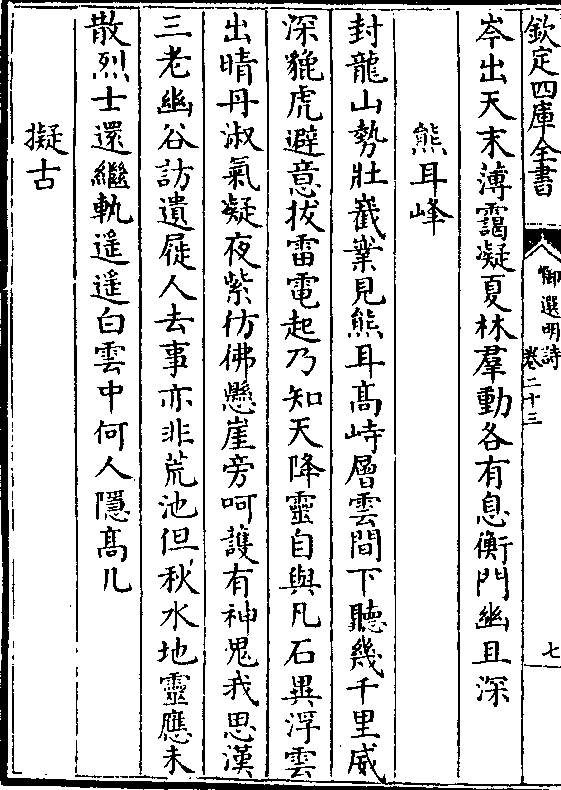 欽定四庫全書
御選明詩
卷二十三
七
岑出天末薄靄凝夏林羣動各有息衡門幽且深
熊耳峰
封龍山勢壯嶻嶪見熊耳髙峙層雲間下聽幾千里威
深貔虎避意拔雷電起乃知天降靈自與凡石異浮雲
出晴丹淑氣凝夜紫彷彿懸崖旁呵䕶有神鬼我思漢
三老幽谷訪遺屣人去事亦非荒池但秋水地靈應未
散烈士還繼軌遥遥白雲中何人隱髙几
擬古